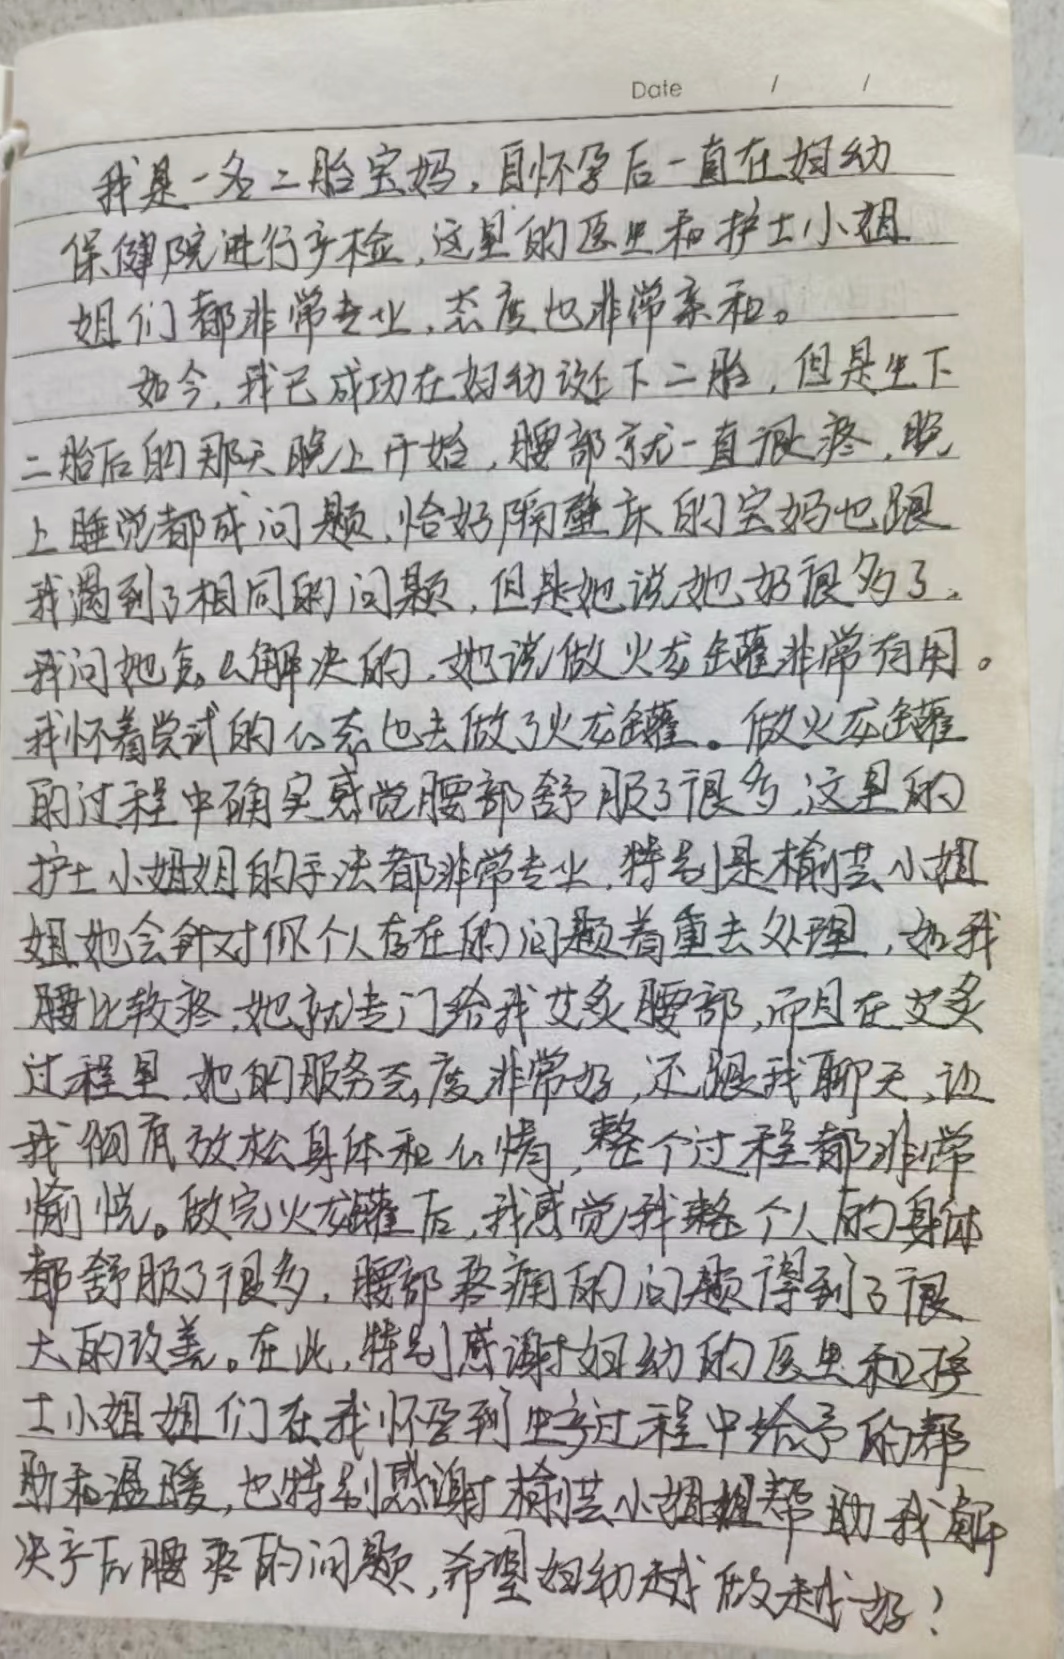 Date / /
我是一名二胎宝妈，自怀孕后一直在妇幼
保健院进行产检，这里的医生和护士小姐
姐们都非常专业，态度也非常亲和。
如今，我已成功在妇幼诞下二胎，但是生下
二胎后的那天晚上开始，腰部就一直很疼，晚
上睡觉都成问题，恰好隔壁床的宝妈也跟
我遇到了相同的问题，但是她说她好很多了，
我问她怎么解决的，她说做火龙罐非常有用。
我怀着尝试的心态也去做了火龙罐。做火龙罐
的过程中确实感觉腰部舒服了很多，这里的
护士小姐姐的手法都非常专业，特别是榆芸小姐
姐她会针对你个人存在的问题着重去处理，如我
腰比较疼，她就专门给我艾炙腰部，而且在艾炙
过程里，她的服务态度非常好，还跟我聊天，让
我彻底放松身体和心情，整个过程都非常
愉悦。做完火龙罐后，我感觉我整个人的身体
都舒服了很多，腰部疼痛的问题得到了很
大的改善。在此，特别感谢妇幼的医生和护
士小姐姐们在我怀孕到生产过程中给予的帮
助和温暖，也特别感谢榆芸小姐姐帮助我解
决产后腰疼的问题，希望妇幼越做越好！